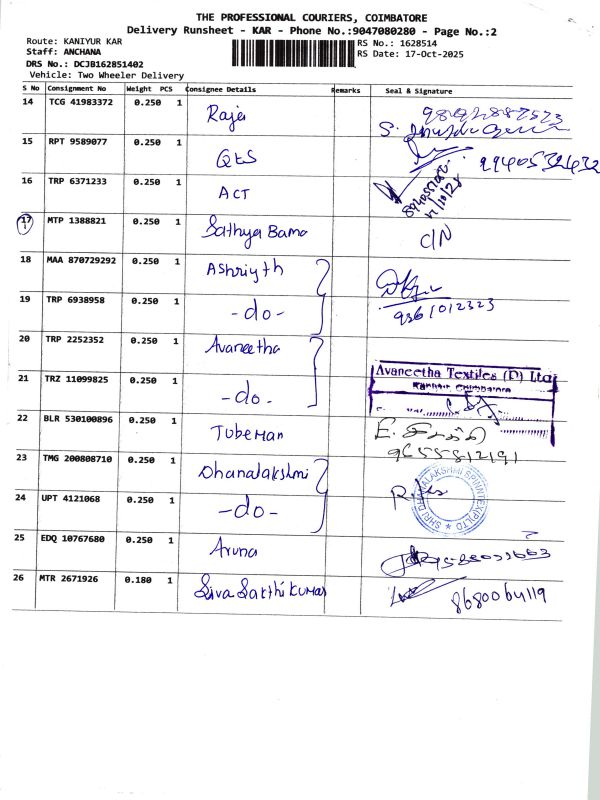 THE PROFESSIONAL COURIERS, COIMBATORE
Delivery Runsheet - KAR - Phone No.:9047080280 - Page No.:2
Route: KANIYUR KAR
RS No.: 1628514
Staff: ANCHANA
RS Date: 17-Oct-2025
DRS No.: DCJB162851402
Vehicle: Two Wheeler Delivery
S No Consignment No Weight PCS Consignee Details Remarks Seal & Signature
14 TCG 41983372 0.250 1 Raja
15 RPT 9589077 0.250 1 9940532432
16 TRP 6371233 0.250 1 ACT
17 MTP 1388821 0.250 1 Sathya Bama C/N
18 MAA 870729292 0.250 1 Ashriyth
19 TRP 6938958 0.250 1 -do- 9361012323
20 TRP 2252352 0.250 1 Avaneetha
Avaneetha Textiles (P) Ltd
21 TRZ 11099825 0.250 1 -do-
22 BLR 530100896 0.250 1 Tubeman 9655812191
23 TMG 200808710 0.250 1 Dhanalakshmi
24 UPT 4121068 0.250 1 -do-
25 EDQ 10767680 0.250 1 Aruna
26 MTR 2671926 0.180 1 Siva Sakthi Kumar 8680064119